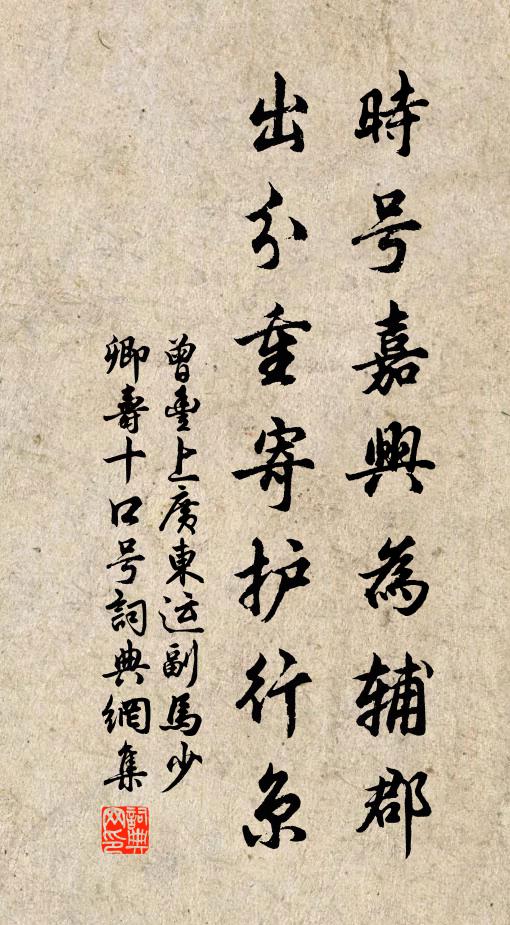 時号嘉興為辅郡
出分重寄护行京
曾豊上廣東运副馬少
卿壽十口号詞典網集
詞典
网印